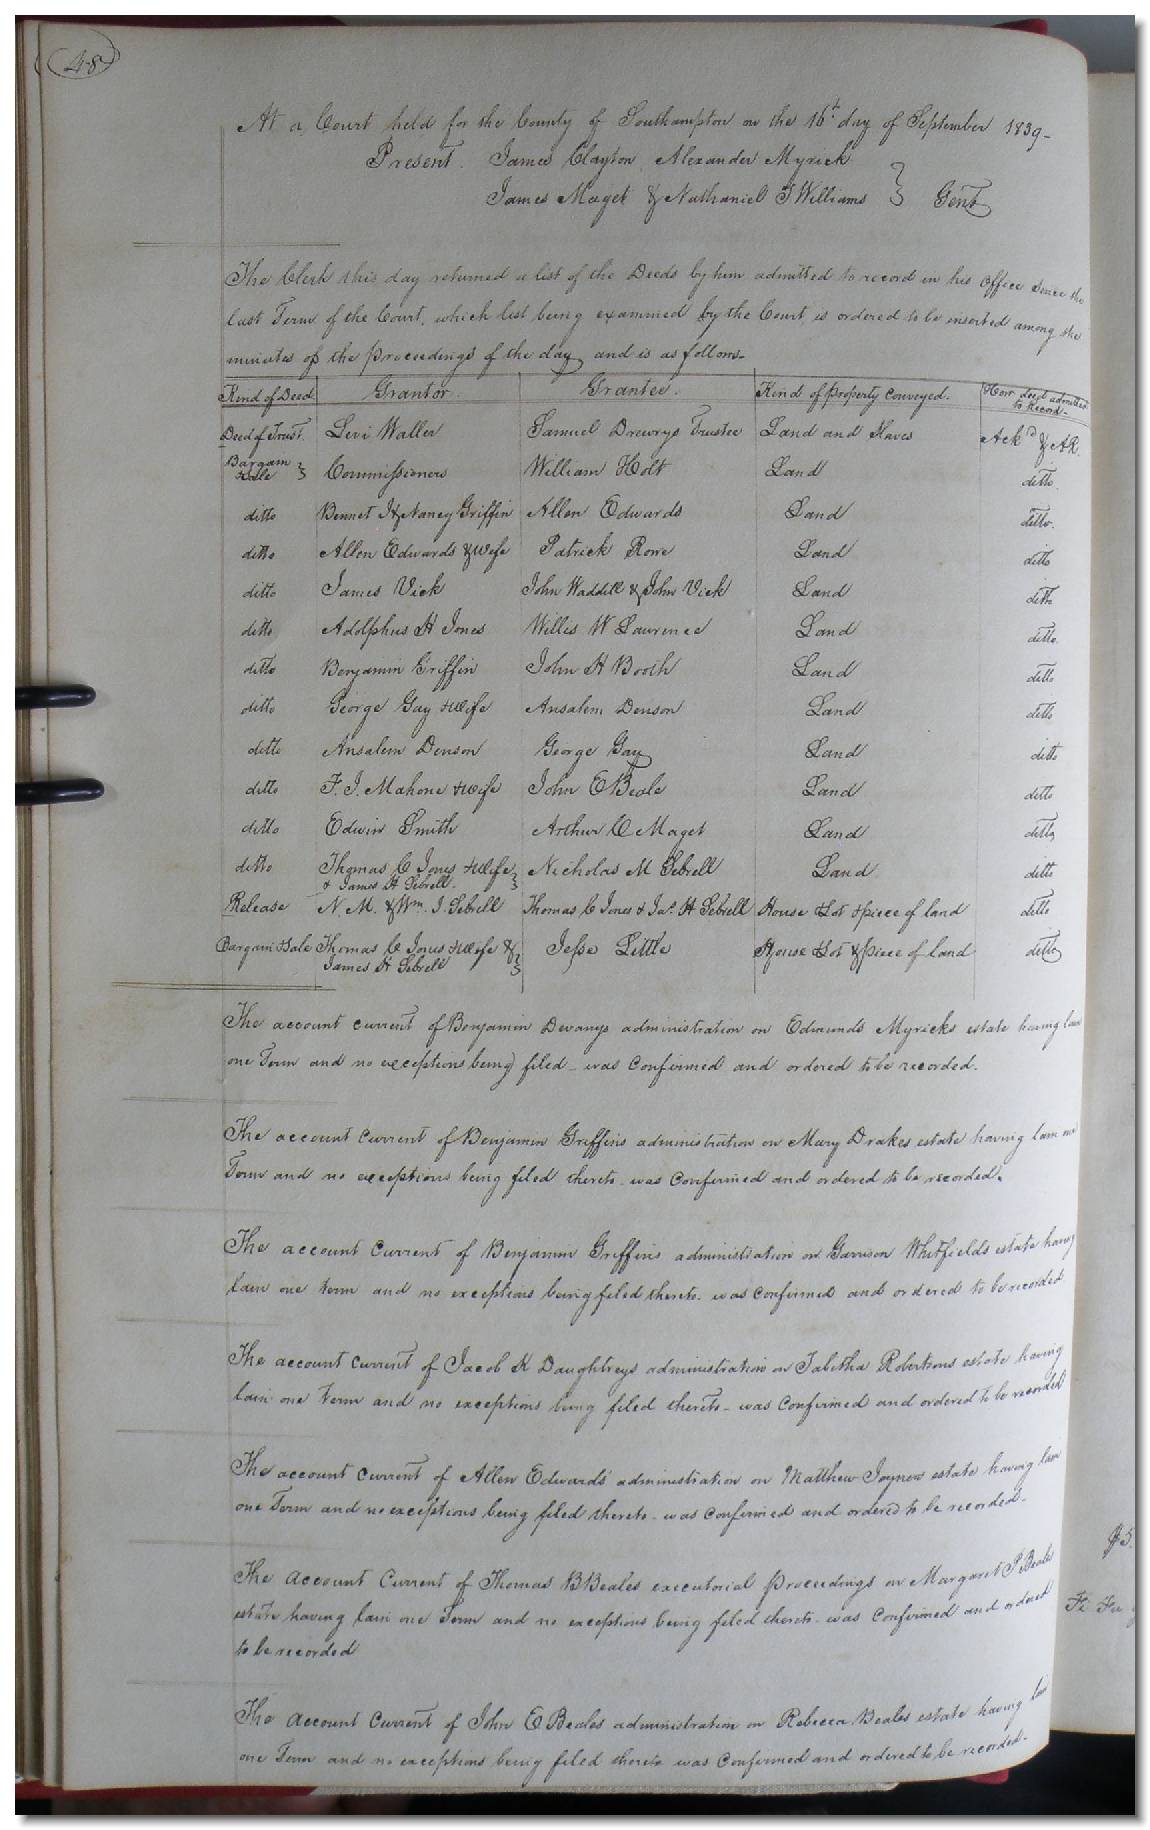 48
At a Court held for the County of Southampton on the 16th day of September 1839-
Present. James Clayton, Alexander Myrick
James Maget & Nathaniel T Williams } Gent
The Clerk this day returned a list of the Deeds by him admitted to record in his office since the
last Term of the Court, which list being examined by the Court, is ordered to be inserted among the
minutes of the proceedings of the day and is as follows-
Kind of Deed Grantor. Grantee. Kind of property conveyed. How deed admitted
to Record.-
Deed of Trust. Levi Waller Samuel Drewrys Trustee Land and Slaves Ackd & AR.
Bargain
Sale } Commissioners William Holt Land ditto.
ditto Bennet H & Nancy Griffin Allen Edwards Land ditto.
ditto Allen Edwards & Wife Patrick Rowe Land ditto
ditto James Vick John Waddill & John Vick Land ditto
ditto Adolphus H Jones Willis W Lawrence Land ditto.
ditto Benjamin Griffin John H Booth Land ditto
ditto George Gay & Wife Ansalem Denson Land ditto
ditto Ansalem Denson George Gay Land ditto
ditto F. J. Mahone & Wife John E Beale Land ditto
ditto Edwin Smith Arthur C Maget Land ditto
ditto Thomas C Jones & Wife } Nicholas M Sebrell Land ditto
& James H Sebrell.
Release N M. & Wm. J. Sebrell Thomas C Jones & Jas. H Sebrell House Lot & piece of land ditto
Bargain & Sale Thomas C Jones & Wife & } Jesse Little House Lot & piece of land ditto
James H Sebrell
The account current of Benjamin Devanys administration on Edmunds Myricks estate having lain
one Term and no exceptions being filed - was Confirmed and ordered to be recorded.
The account current of Benjamin Griffins administration on Mary Drakes estate having lain one
Term and no exceptions being filed thereto - was Confirmed and ordered to be recorded.
The account Current of Benjamin Griffins administration on Garrison Whitfields estate having
lain one term and no exceptions being filed thereto - was Confirmed and ordered to be recorded
The account Current of Jacob K Daughtreys administration on Tabitha Robertsons estate having
lain one term and no exceptions being filed thereto - was Confirmed and ordered to be recorded
The account Current of Allen Edwards administration on Matthew Joyners estate having lain
one Term and no exceptions being filed thereto - was Confirmed and ordered to be recorded-
The Account Current of Thomas B Beales executorial proceedings on Margaret Beales
estate having lain one Term and no exceptions being filed thereto - was Confirmed and ordered
to be recorded
The Account Current of John E Beales administration on Rebecca Beales estate having lain
one Term and no exceptions being filed thereto was Confirmed and ordered to be recorded-
$5.